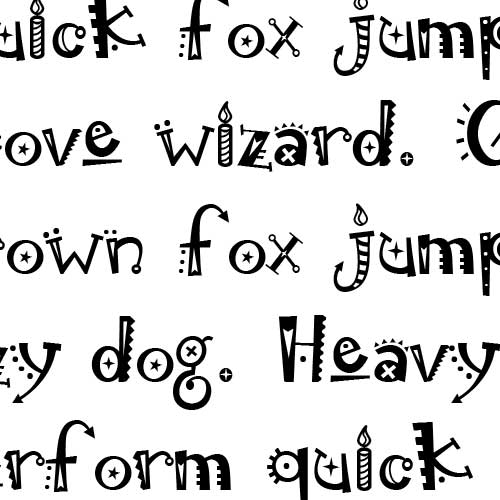 uick fox jump
ove wizard.
rown fox jump
zy dog. Heavy
erform quick